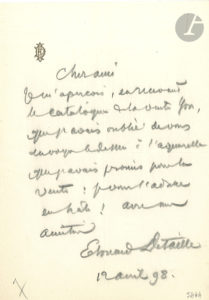 Cher ami
Je m'aperçois, en recevant
le catalogue de la vente Yon,
que j'avais oublié de vous
envoyer le dessin à l'aquarelle
que j'avais promis pour la
vente !
en hâte ! avec mon
amitié
Edouard Detaille
12 avril 98.